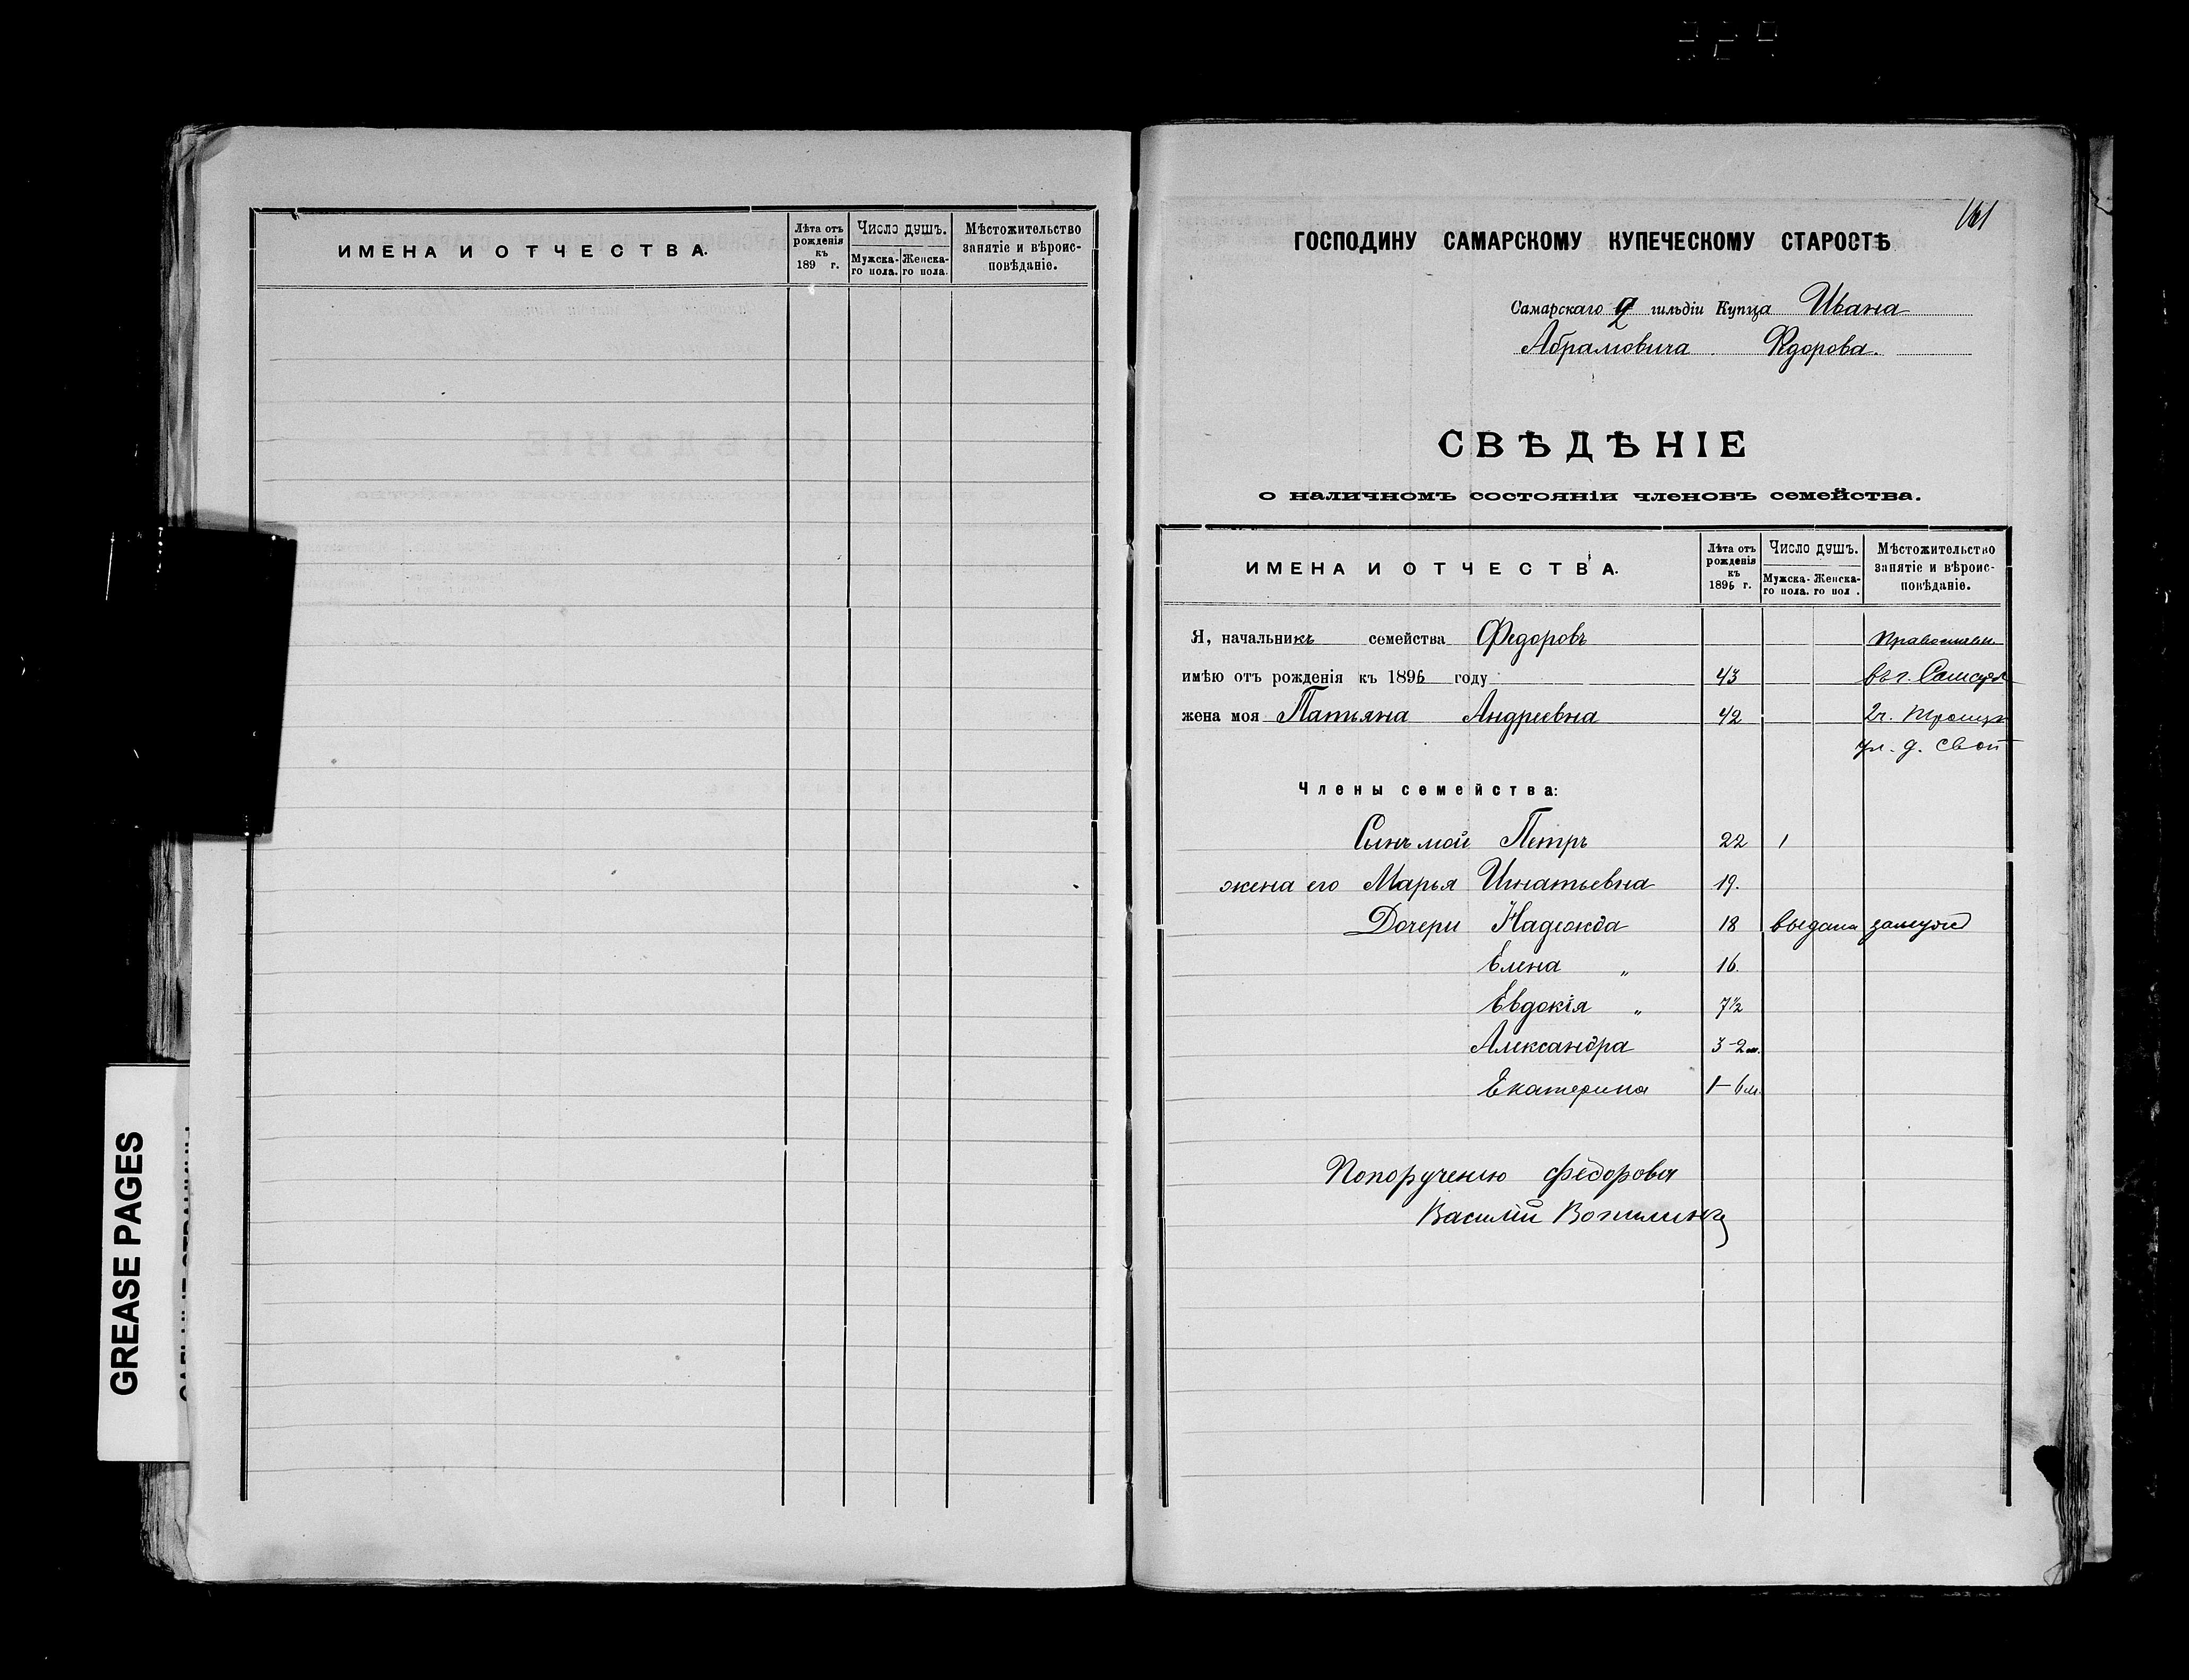 ИМЕНА И ОТЧЕСТВА.
Лѣта отъ рожденія къ 189 г.
Число душъ.
Мужска-го пола.
Женска-го пола.
Мѣстожительство занятіе и вѣроис-повѣданіе.
GREASE PAGES
161
ГОСПОДИНУ САМАРСКОМУ КУПЕЧЕСКОМУ СТАРОСТѢ
Самарскаго 2 гильдіи Купца Ивана
Абрамовича Ѳдорова.
СВѢДѢНІЕ
о наличномъ состояніи членовъ семейства.
ИМЕНА И ОТЧЕСТВА.
Лѣта отъ рожденія къ 1896 г.
Число душъ.
Мужска-го пола.
Женска-го пол .
Мѣстожительство занятіе и вѣроис-повѣданіе.
Я, начальникъ семейства Федоровъ
имѣю отъ рожденія къ 1896 году 43 въ г.
жена моя Татьяна Андреевна 42 2ч.
ул. д. свой
Члены семейства:
Сынъ мой Петръ 22 1
жена его Марья Игнатьевна 19.
Дочери Надежда 18 выдана замужъ
Елена „ 16.
Евдокія „ 7½
Александра 3-2м.
Екатерина 1-6м.
По порученію Федорова
Василій